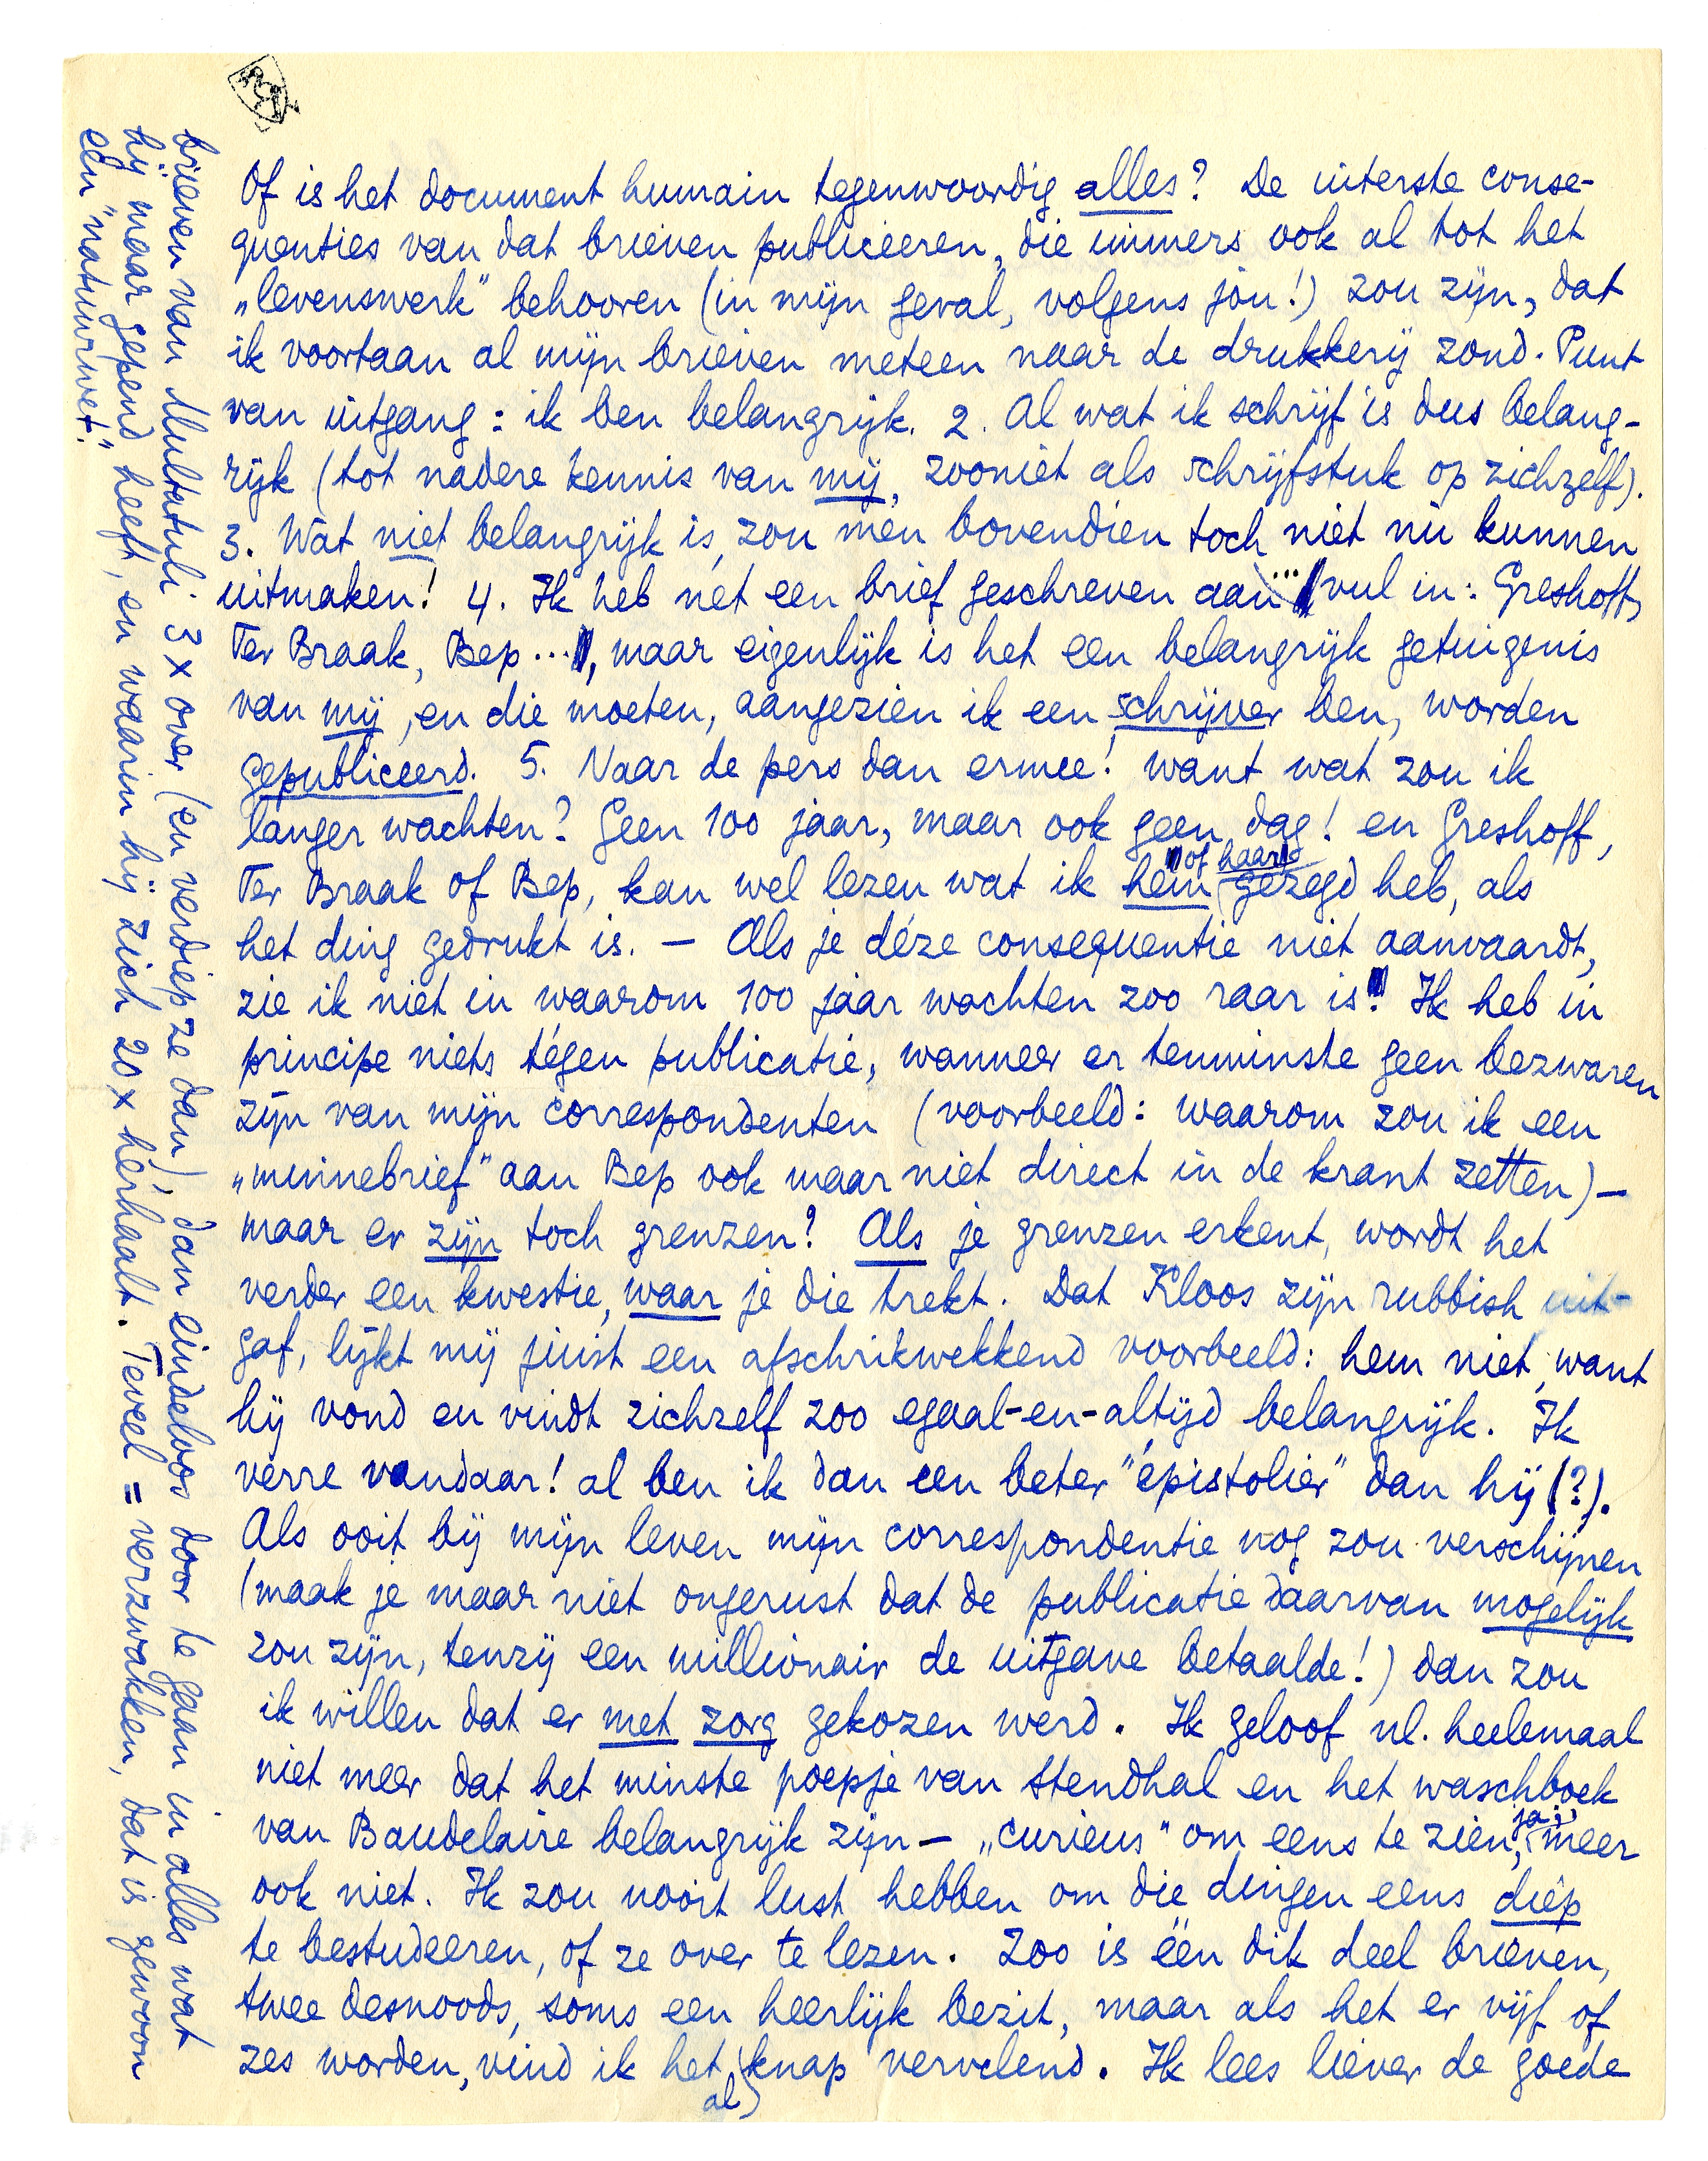 Of is het document humain tegenwoordig alles? De uiterste conse-
quenties van dat brieven publiceeren, die immers ook al tot het
„levenswerk" behooren (in mijn geval, volgens jou!) zou zijn, dat
ik voortaan al mijn brieven meteen naar de drukkerij zond. Punt
van uitgang: ik ben belangrijk. 2. Al wat ik schrijf is dus belang-
rijk (tot nadere kennis van mij, zooniet als schrijfstuk op zichzelf).
3. Wat niet belangrijk is, zou men bovendien toch niet nu kunnen
uitmaken! 4. Ik heb nét een brief geschreven aan ... (vul in: Greshoff,
Ter Braak, Bep ...), maar eigenlijk is het een belangrijk getuigenis
van mij, en die moeten, aangezien ik een schrijver ben, worden
gepubliceerd. 5. Naar de pers dan ermee! want wat zou ik
langer wachten? Geen 100 jaar, maar ook geen dag! en Greshoff,
Ter Braak of Bep, kan wel lezen wat ik hem (of haar) gezegd heb, als
het ding gedrukt is. — Als je déze consequentie niet aanvaardt,
zie ik niet in waarom 100 jaar wachten zoo raar is! Ik heb in
principe niets tégen publicatie, wanneer er tenminste geen bezwaren
zijn van mijn correspondenten (voorbeeld: waarom zou ik een
„minnebrief" aan Bep ook maar niet direct in de krant zetten) —
maar er zijn toch grenzen? Als je grenzen erkent, wordt het
verder een kwestie, waar je die trekt. Dat Kloos zijn rubbish uit-
gaf, lijkt mij juist een afschrikwekkend voorbeeld: hem niet, want
hij vond en vindt zichzelf zoo egaal-en-altijd belangrijk. Ik
verre vandaar! al ben ik dan een beter "épistolier" dan hij (?).
Als ooit bij mijn leven mijn correspondentie nog zou verschijnen
(maak je maar niet ongerust dat de publicatie daarvan mogelijk
zou zijn, tenzij een millionair de uitgave betaalde!) dan zou
ik willen dat er met zorg gekozen werd. Ik geloof nl. heelemaal
niet meer dat het minste poepje van Stendhal en het waschboek
van Baudelaire belangrijk zijn — „curieus" om eens te zien, ja; meer
ook niet. Ik zou nooit lust hebben om die dingen eens diép
te bestudeeren, of ze over te lezen. Zoo is één dik deel brieven,
twee desnoods, soms een heerlijk bezit, maar als het er vijf of
zes worden, vind ik het al knap vervelend. Ik lees liever de goede
brieven van Multatuli 3 x over (en verdiep ze dan), dan eindeloos door te gaan in alles wat
hij maar gepend heeft, en waarin hij zich 20 x hérhaalt. Teveel = verzwakken, dat is gewoon
een "natuurwet".